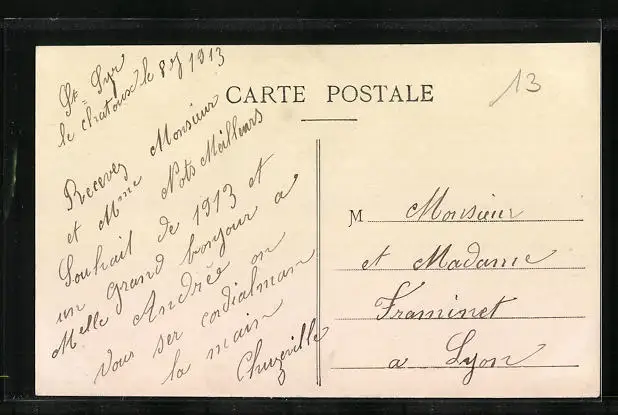 St Cyr
le chatoux le 8 J 1913
Recevez Monsieur
et Mme Nots Meilleurs
Souhait de 1913 et
un grand bonjour a
Melle Andrée on
vous ser cordialman
la main
Chuzeville
CARTE POSTALE
13
M Monsieur
et Madame
Framinet
a Lyon